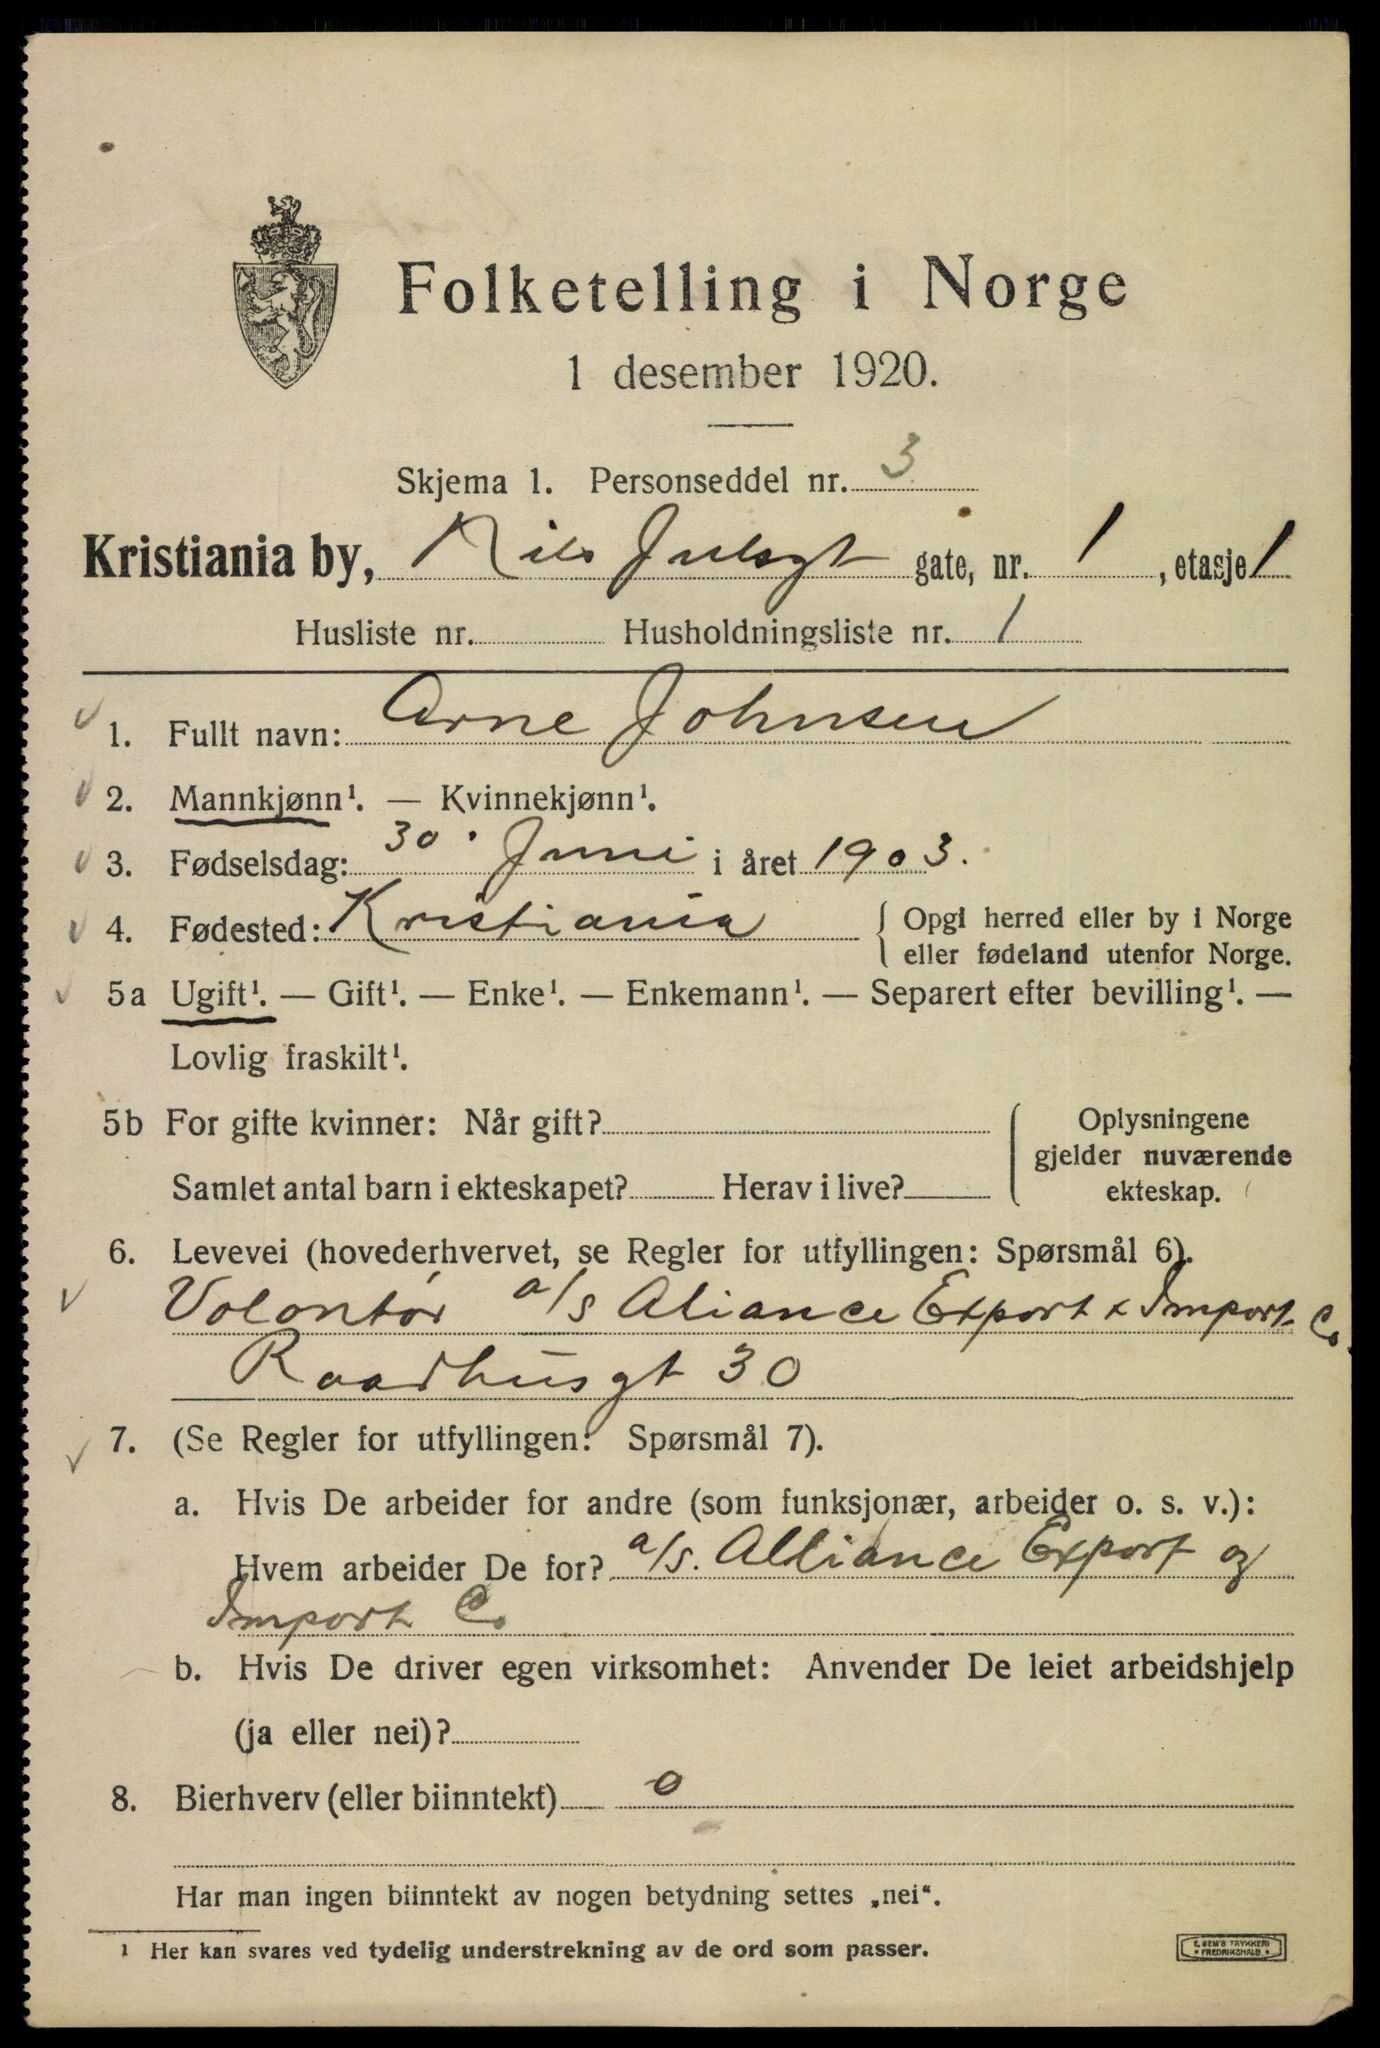 Folketelling i Norge
1 desember 1920.
Skjema 1. Personseddel nr. 3
Kristiania by, Nils Julsgt gate, nr. 1, etasje 1
Husliste nr. Husholdningsliste nr. 1
1. Fullt navn: Arne Johnsen
2. Mannkjønn¹. — Kvinnekjønn¹.
3. Fødselsdag: 30. Juni i året 1903.
4. Fødested: Kristiania { Opgi herred eller by i Norge
eller fødeland utenfor Norge.
5a Ugift¹. — Gift¹. — Enke¹. — Enkemann¹. — Separert efter bevilling¹. —
Lovlig fraskilt¹.
5b For gifte kvinner: Når gift? { Oplysningene
gjelder nuværende
Samlet antal barn i ekteskapet? Herav i live? ekteskap.
6. Levevei (hovederhvervet, se Regler for utfyllingen: Spørsmål 6).
Volontør a/s Aliance Export & Import Co.
Raadhusgt 30
7. (Se Regler for utfyllingen: Spørsmål 7).
a. Hvis De arbeider for andre (som funksjonær, arbeider o. s. v.):
Hvem arbeider De for? a/s. Alliance Export og
Import Co
b. Hvis De driver egen virksomhet: Anvender De leiet arbeidshjelp
(ja eller nei)?
8. Bierhverv (eller biinntekt) 0
Har man ingen biinntekt av nogen betydning settes „nei“.
¹ Her kan svares ved tydelig understrekning av de ord som passer.
E. SEM'S TRYKKERI
• FREDRIKSHALD •